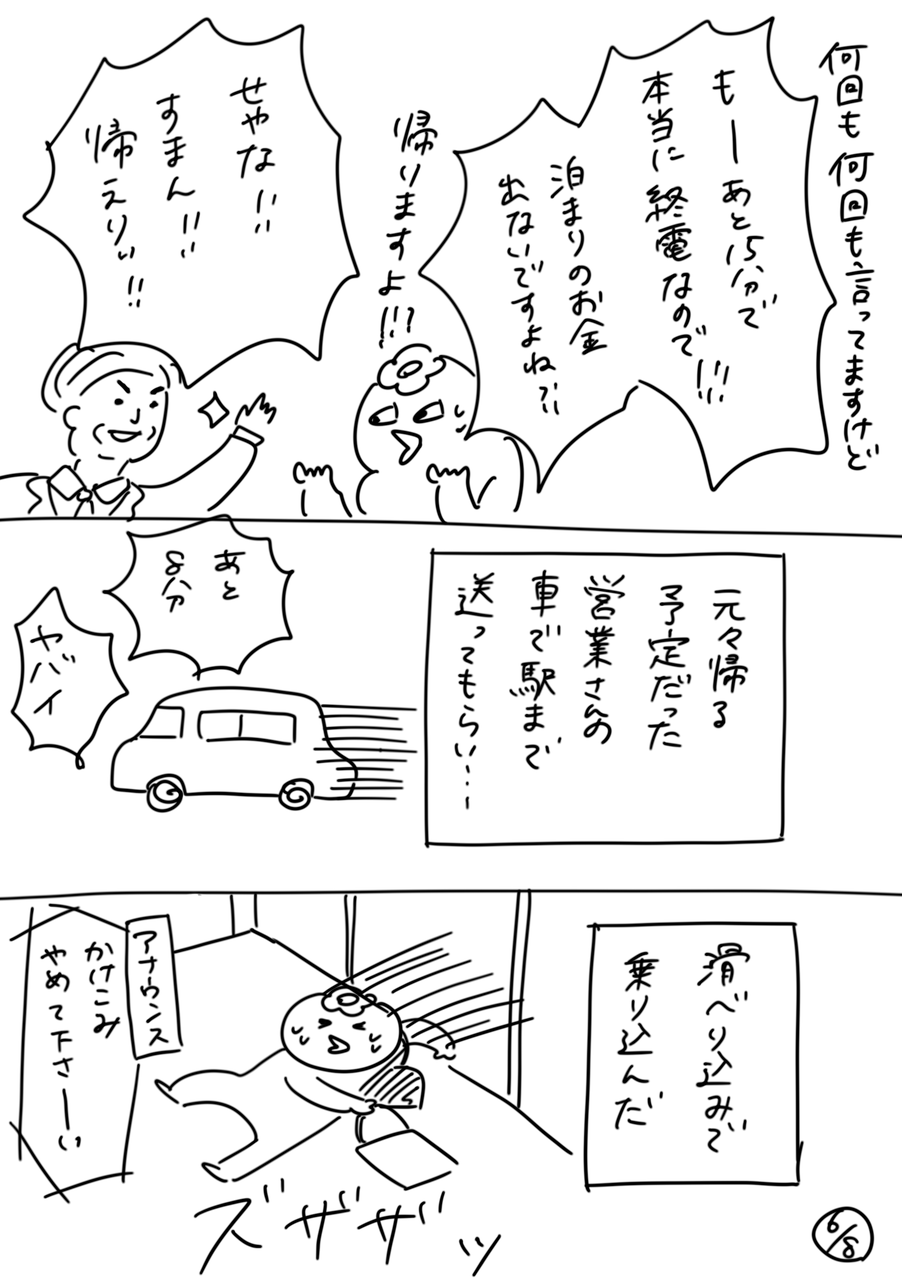 何回も何回も言ってますけど
もーあと15分で
本当に終電なので!!!
泊まりのお金
出ないですよね?!!
帰りますよ!!?
せやな!!
すまん!!
帰えり!!
元々帰る
予定だった
営業さんの
車で駅まで
送ってもらい…
あと
8分
ヤバイ
滑べり込みで
乗り込んだ
アナウンス
かけこみ
やめて下さーい
ズザザッ
6/8